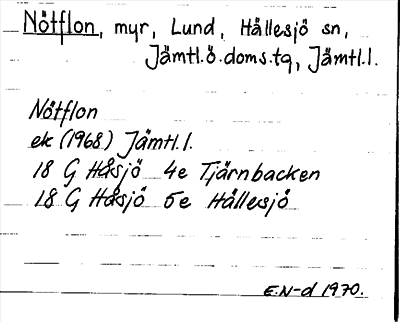 Nötflon, myr, Lund, Hållesjö sn,
Jämtl.ö.doms.tg, Jämtl.l.
Nötflon
ek (1968) Jämtl.l.
18 G Håsjö 4e Tjärnbacken
18 G Håsjö 5e Hållesjö
E.N-d 1970.